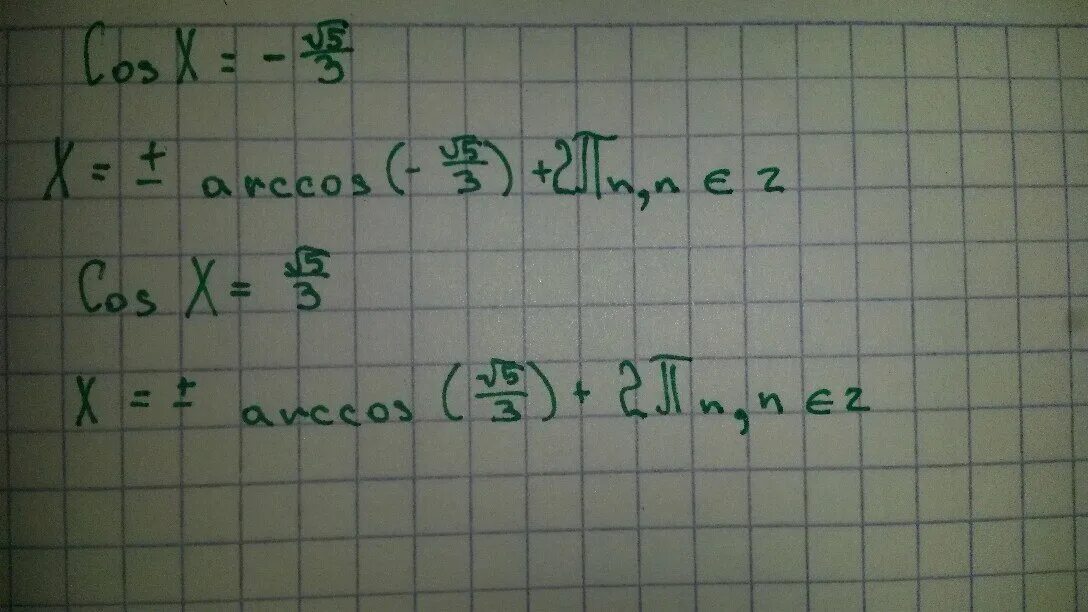 Cos X = - √5/3
X = ± arccos (- √5/3) + 2πn, n ∈ z
Cos X = √5/3
X = ± arccos (√5/3) + 2πn, n ∈ z